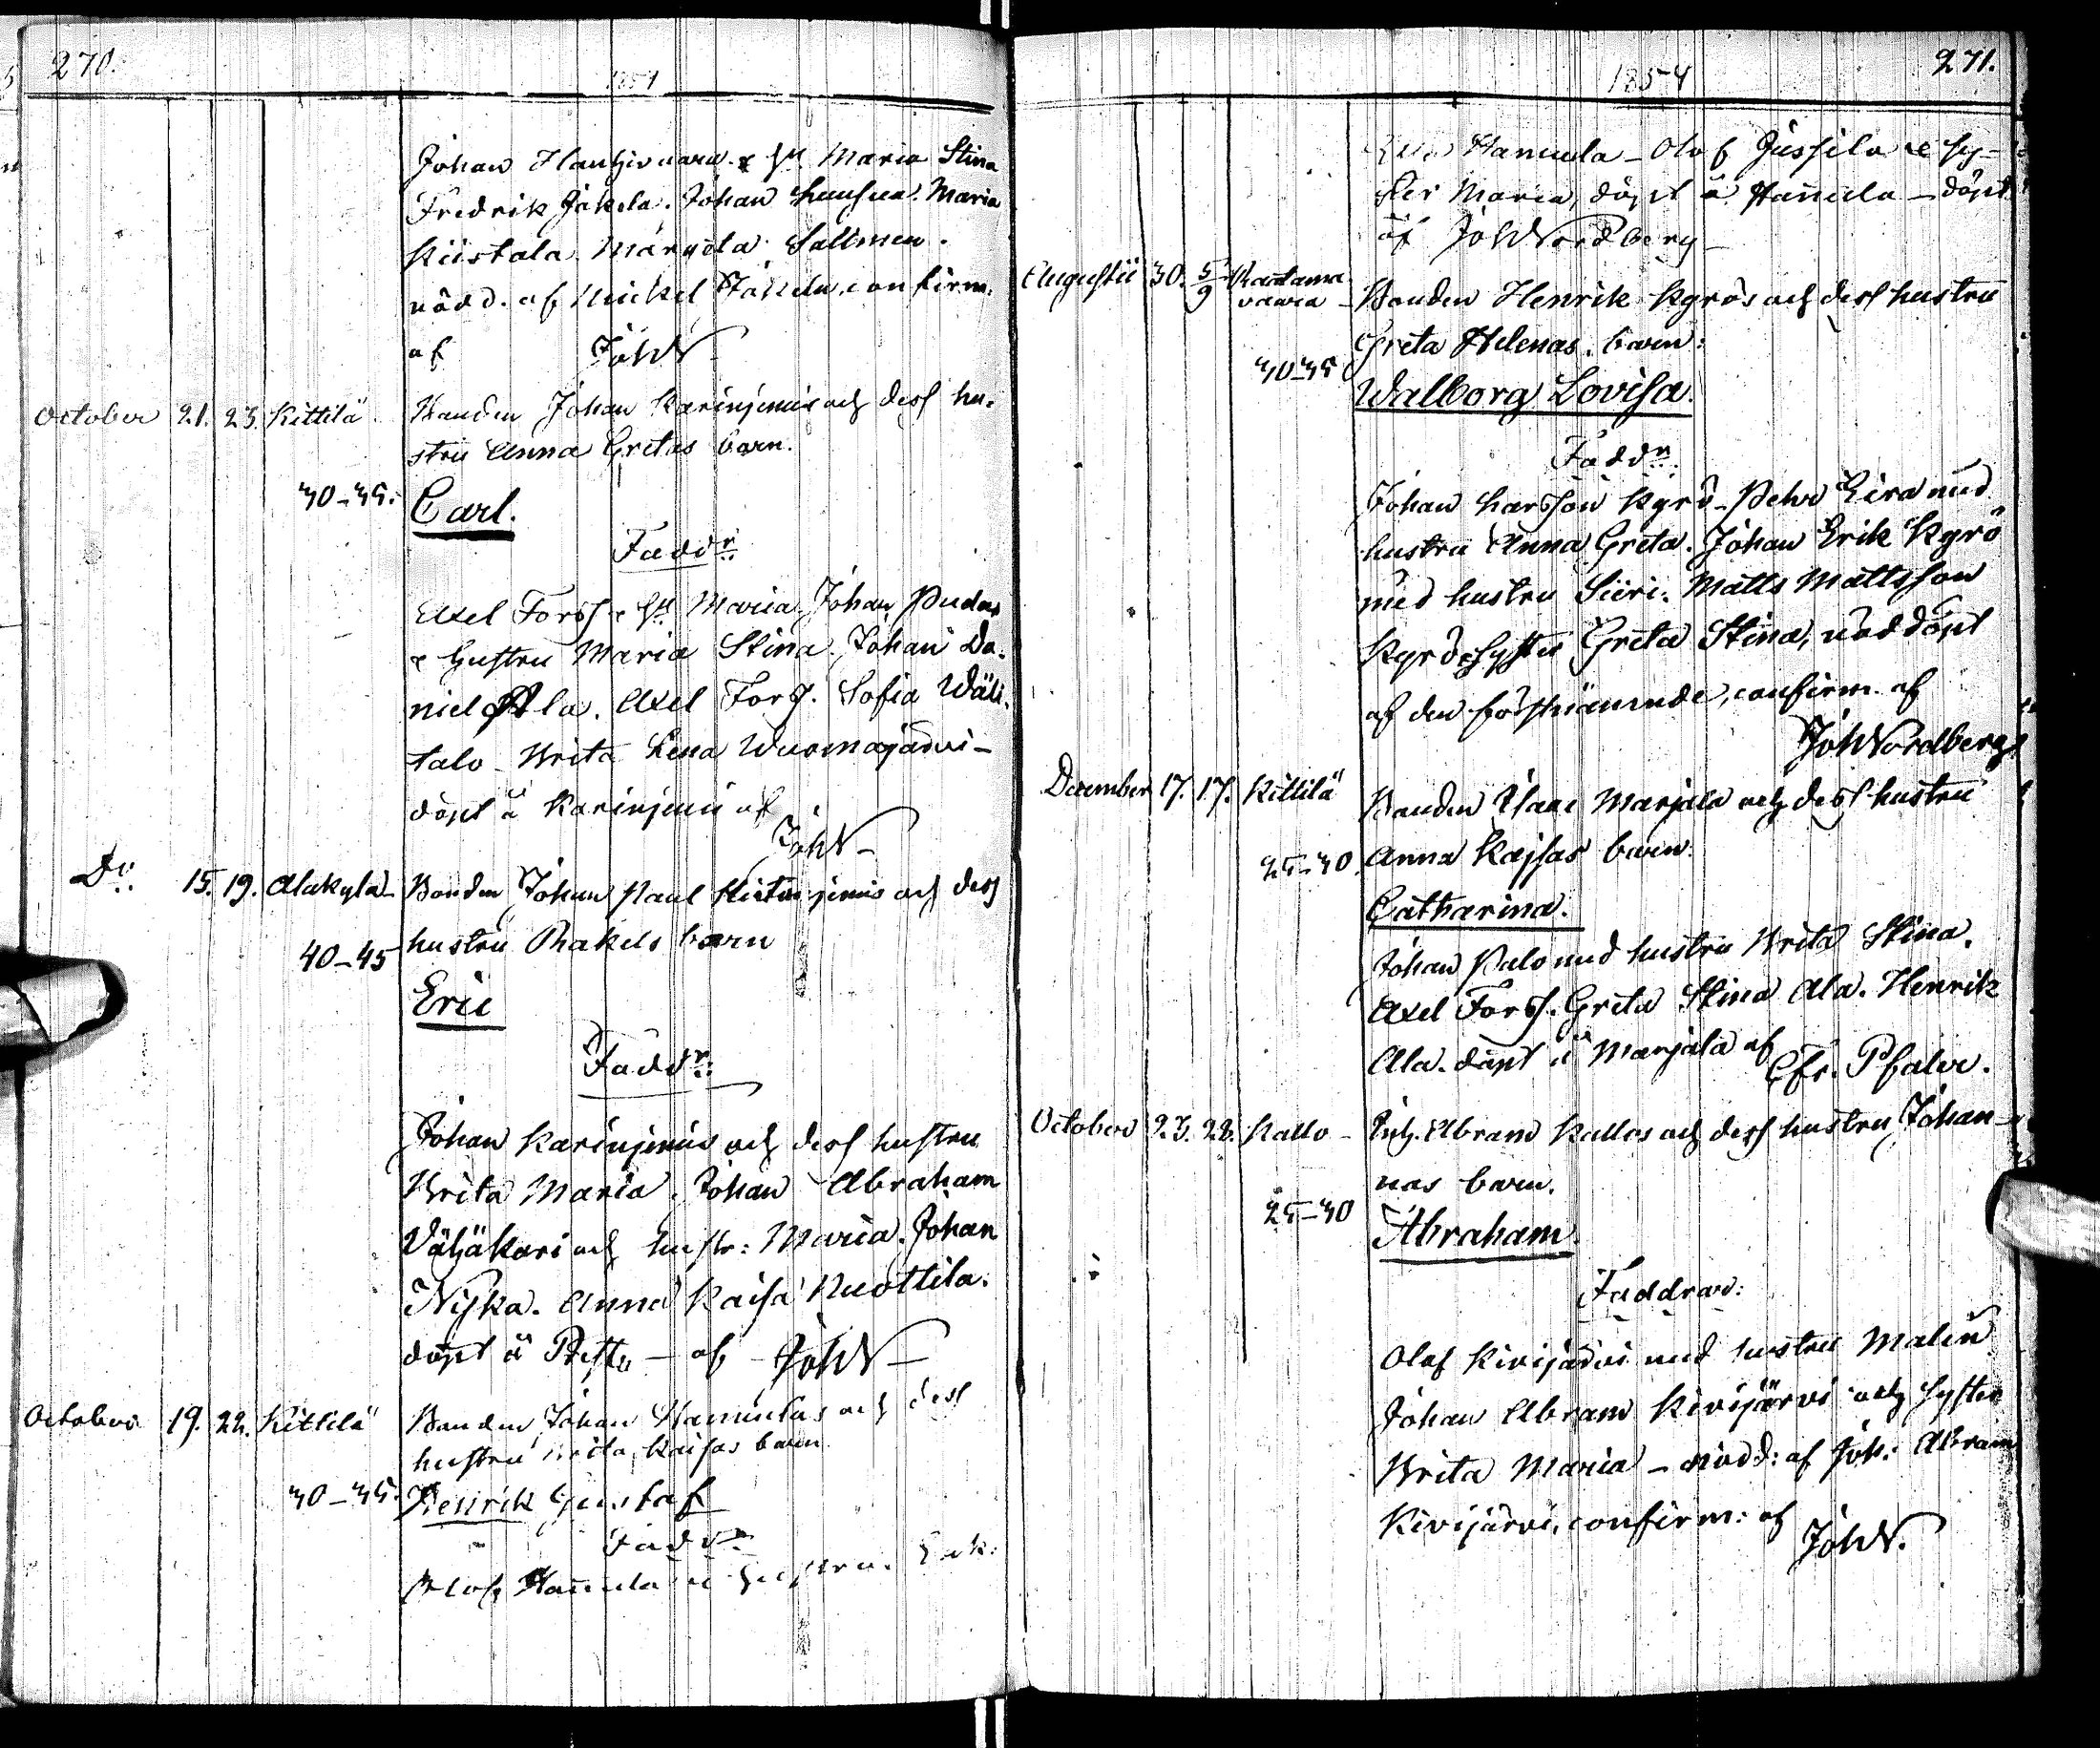 270.
1854
Johan Hanhivaara & h. Maria Stina
Fredrik Jakola. Johan Maria
Kiistala Sallinen.
nödd. af Mickel confirm.
af JohN
October 21. 23. Kittilä Bonden Johan Karinjemis och dess hu-
stru Anna Gretas barn.
30-35. Carl.
Faddr.
Axel Forss & h. Maria. Johan Pudas
& hustru Maria Stina. Johan Da-
niel Ala. Axel Forss. Sofia Wäli-
talo. Brita Lena Wuomajärvi –
döpt å Karinjemi af
JohN –
Do. 15. 19. Alakylä Bonden Johan Paul och dess
hustru Rakels barn
40-45
Eric
Faddr.
Johan Karinjemis och dess hustru
Brita Maria. Johan Abraham
Väljäkari och hustr: Maria. Johan
Niska. Anna Kaisa Nuottila.
döpt å – af JohN –
October 19. 22. Kittilä Bonden Johan Hannulas och dess
hustru Brita Kaisas barn
30-35. Henrik Gustaf
Faddr.
Olof Hannula & hustru. Erik:
271.
1854
Hannula – Olof Jussila & sy-
ster Maria, döpt å Hannula – döpt
af JohNordberg –
Augusti 30. 5/9 Rautus
vaara – Bonden Henrik Kyrös och dess hustru
Greta Helenas barn:
30-35
Walborg Lovisa.
Faddr.
Johan Larsson Kyrö – Pehr Eira med
hustru Anna Greta. Johan Erik Kyrö
med hustru Siiri. Matts Mattsson
Kyrö & syster Greta Stina, nöddöpt
af den förstnämnde, confirm. af
JohNordberg
December 17. 17. Kittilä Bonden Isaac Marjala och dess hustru
25-30 Anna Kajsas barn.
Catharina.
Johan Palo med hustru Brita Stina.
Axel Forss. Greta Stina Ala. Henrik
Ala. döpt å Marjala af
Efr. Pfaler.
October 23. 28. Kallo – Abram Kallos och dess hustru Johan-
nas barn.
25-30
Abraham.
Faddrar:
Olof Kivijärvi med hustru Malin
Johan Abram Kivijärvi och syster
Brita Maria – nödd: af Joh: Abram
Kivijärvi, confirm: af
JohN.